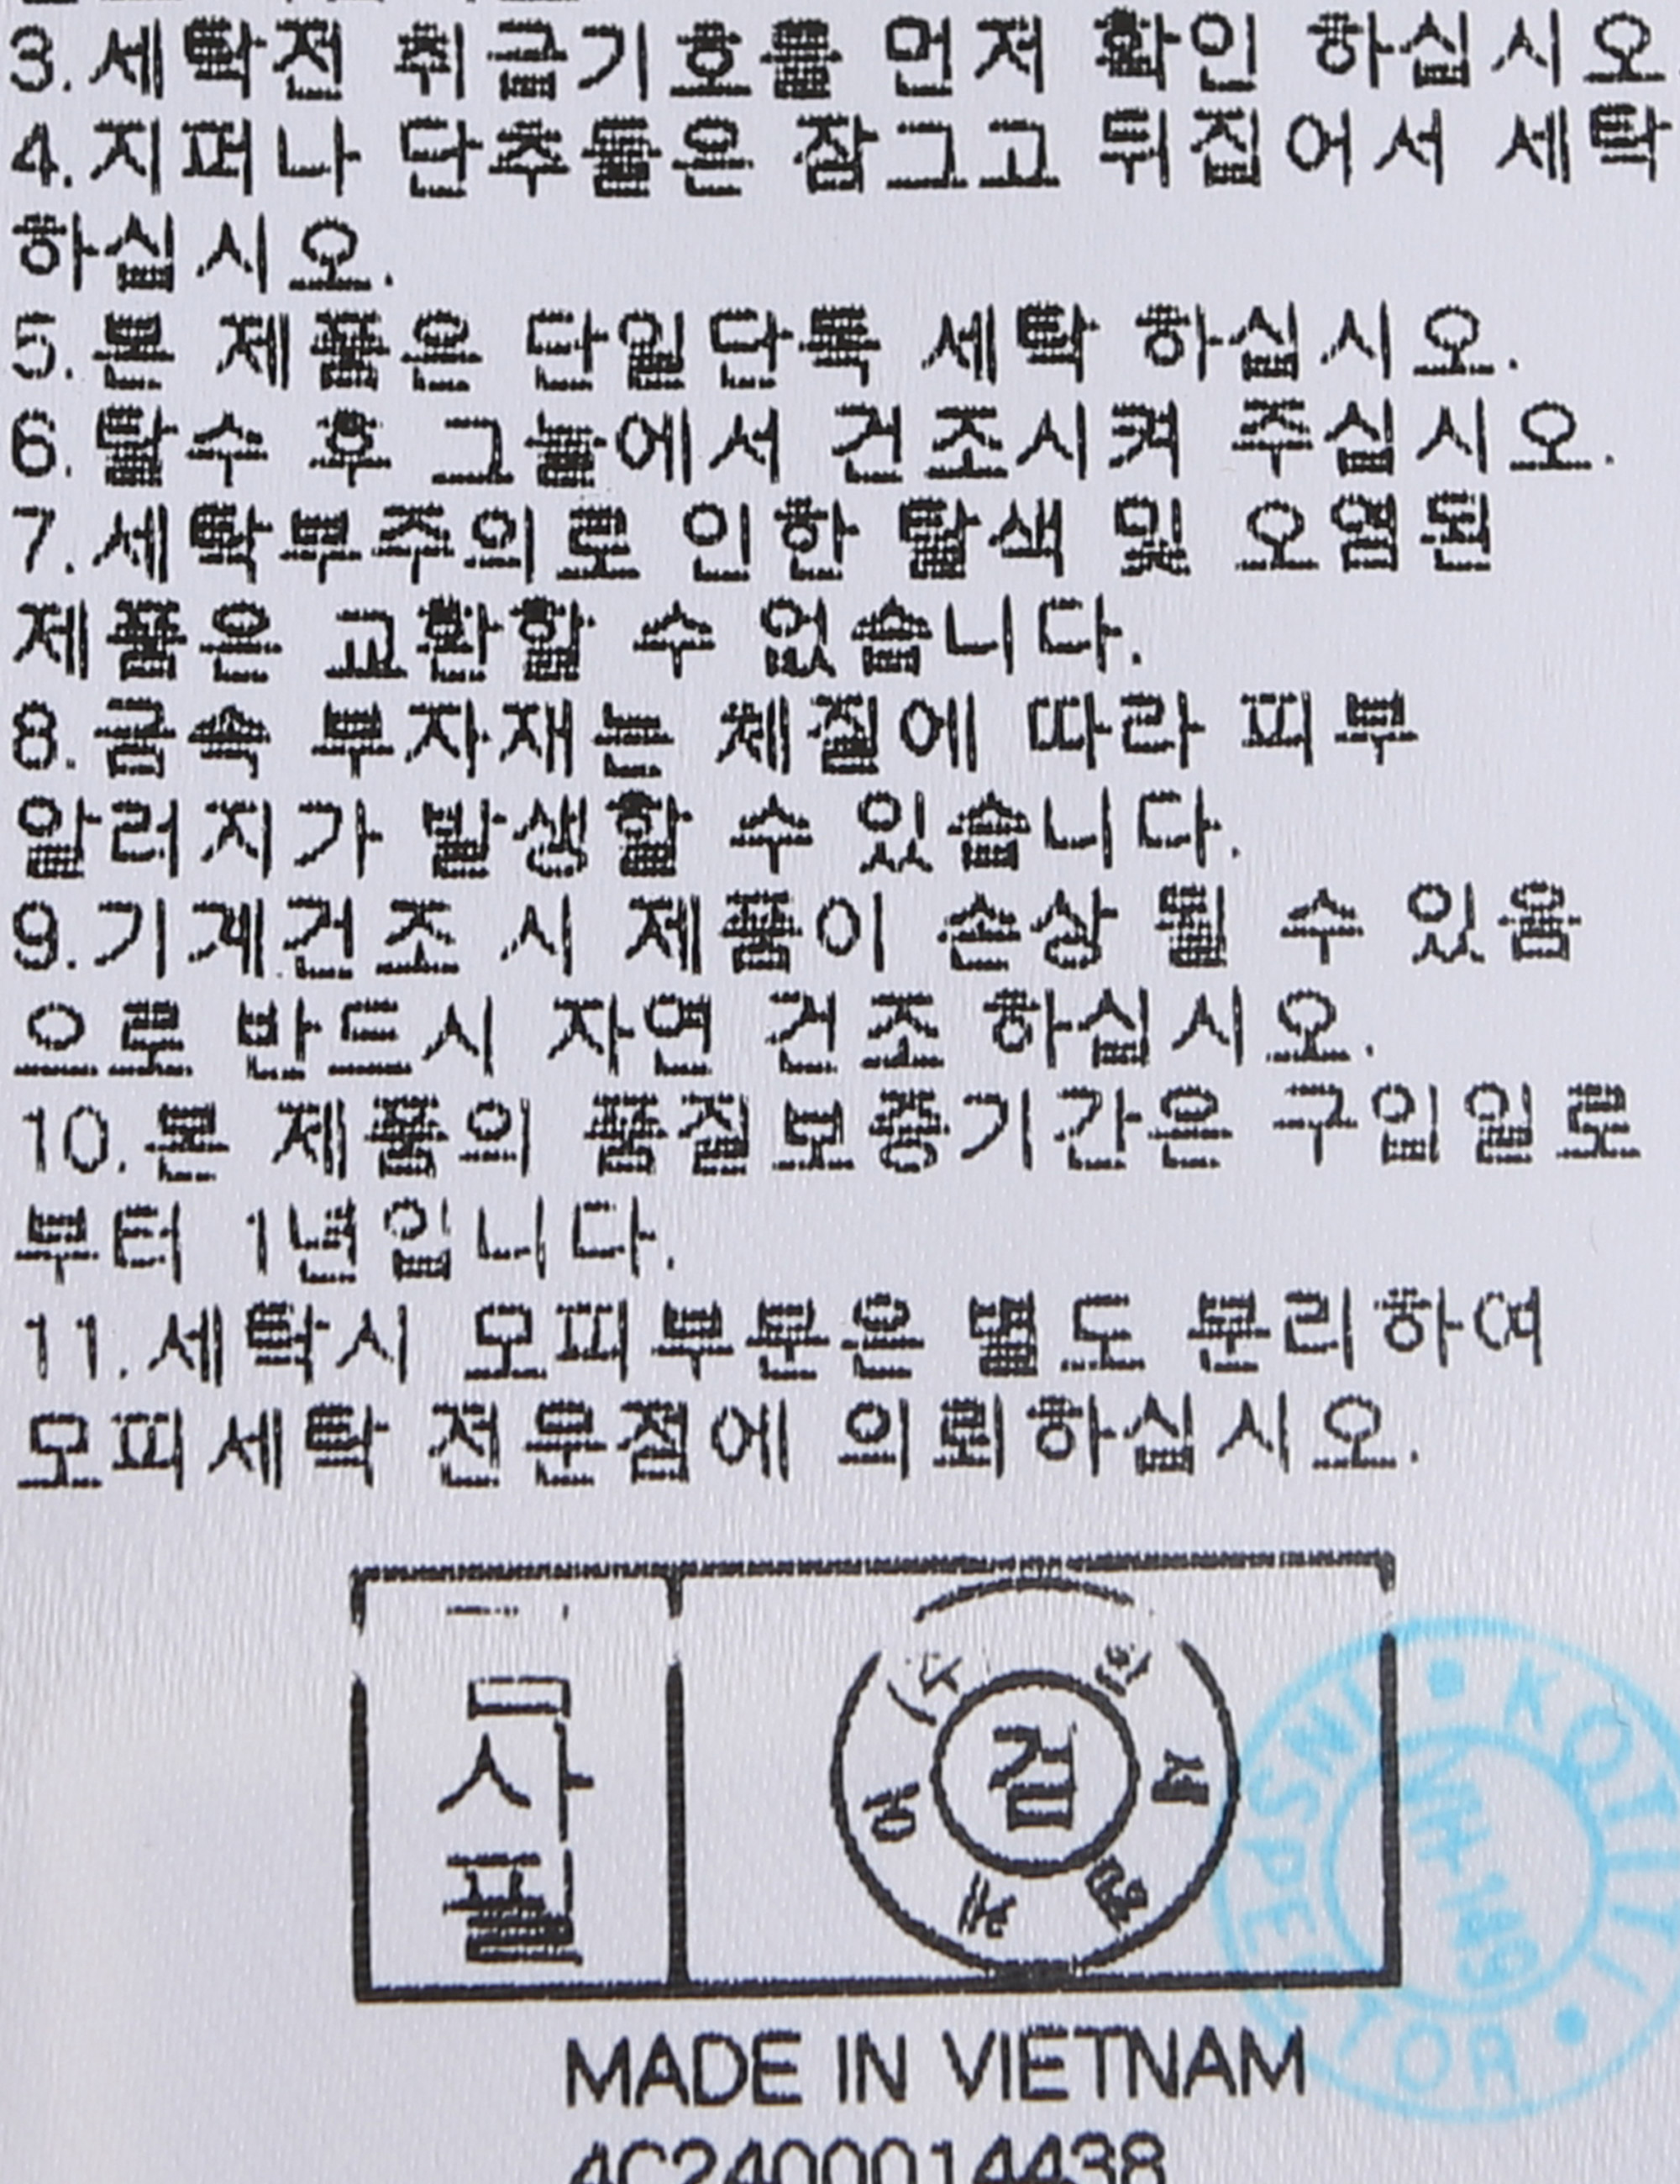 3.세탁전 취급기호를 먼저 확인 하십시오.
4.지퍼나 단추들은 잠그고 뒤집어서 세탁
하십시오.
5.본 제품은 단일단독 세탁 하십시오.
6.탈수 후 그늘에서 건조시켜 주십시오.
7.세탁부주의로 인한 탈색 및 오염된
제품은 교환할 수 없습니다.
8.금속 부자재는 체질에 따라 피부
알러지가 발생할 수 있습니다.
9.기계건조 시 제품이 손상 될 수 있음
으로 반드시 자연 건조 하십시오.
10.본 제품의 품질보증기간은 구입일로
부터 1년입니다.
11.세탁시 모피부분은 별도 분리하여
모피세탁 전문점에 의뢰하십시오.
사
필
검
KOTITI
INSPECTOR
MADE IN VIETNAM
4C2400014438